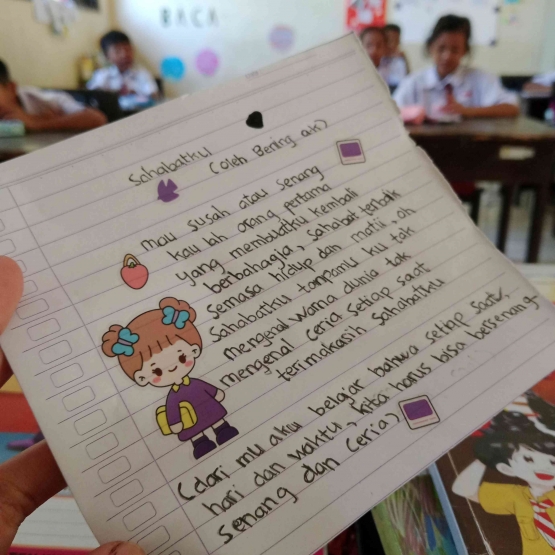 BACA
Sahabatku
(Oleh Bening ak)
Mau susah atau senang
kau lah orang pertama
yang membuatku kembali
berbahagia, sahabat terbaik
semasa hidup dan matii, oh
Sahabatku tanpamu ku tak
mengenal warna dunia tak
mengenal ceria setiap saat
terimakasih sahabatku
(dari mu aku belajar bahwa setiap saat,
hari dan waktu, kita harus bisa bersenang
senang dan ceria)